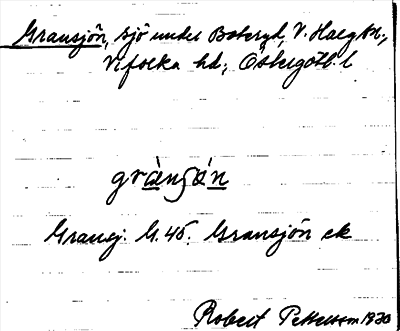 Gransjön, sjö under Boberyd, V. Harg sn.,
Vifolka hd, Östergötl. l
grànʃǿn
Gransj. G. 45. Gransjön ek
Robert Pettersson 1930